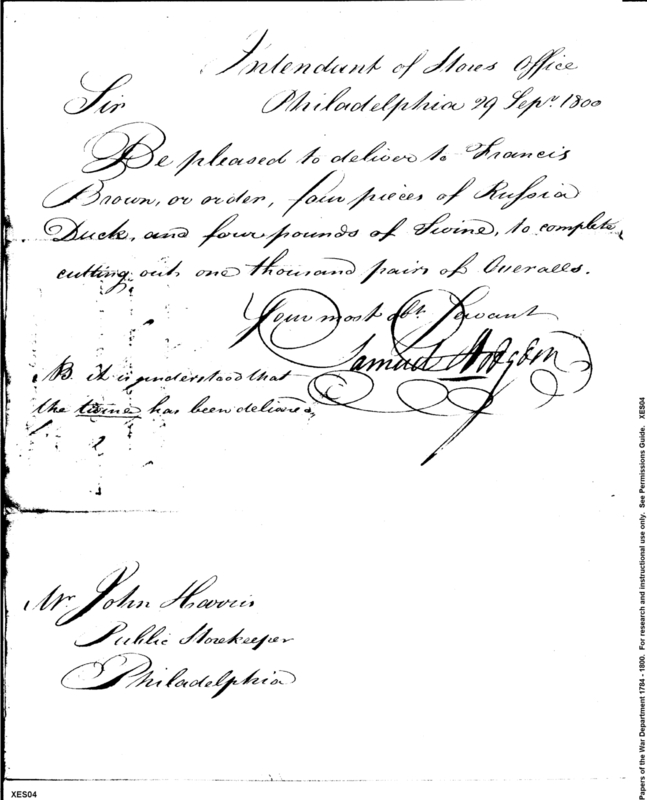 Intendant of Stores Office
Philadelphia 29 Sepr. 1800
Sir
Be pleased to deliver to Francis
Brown, or order, four pieces of Russia
Duck, and four pounds of Twine, to complete
cutting out one thousand pairs of Overalls.
Your most obt. Servant
Samuel Hodgdon
NB. it is understood that
the twine has been delivered
Mr. John Harris
Public Storekeeper
Philadelphia
XES04
Papers of the War Department 1784 - 1800. For research and instructional use only. See Permissions Guide. XES04